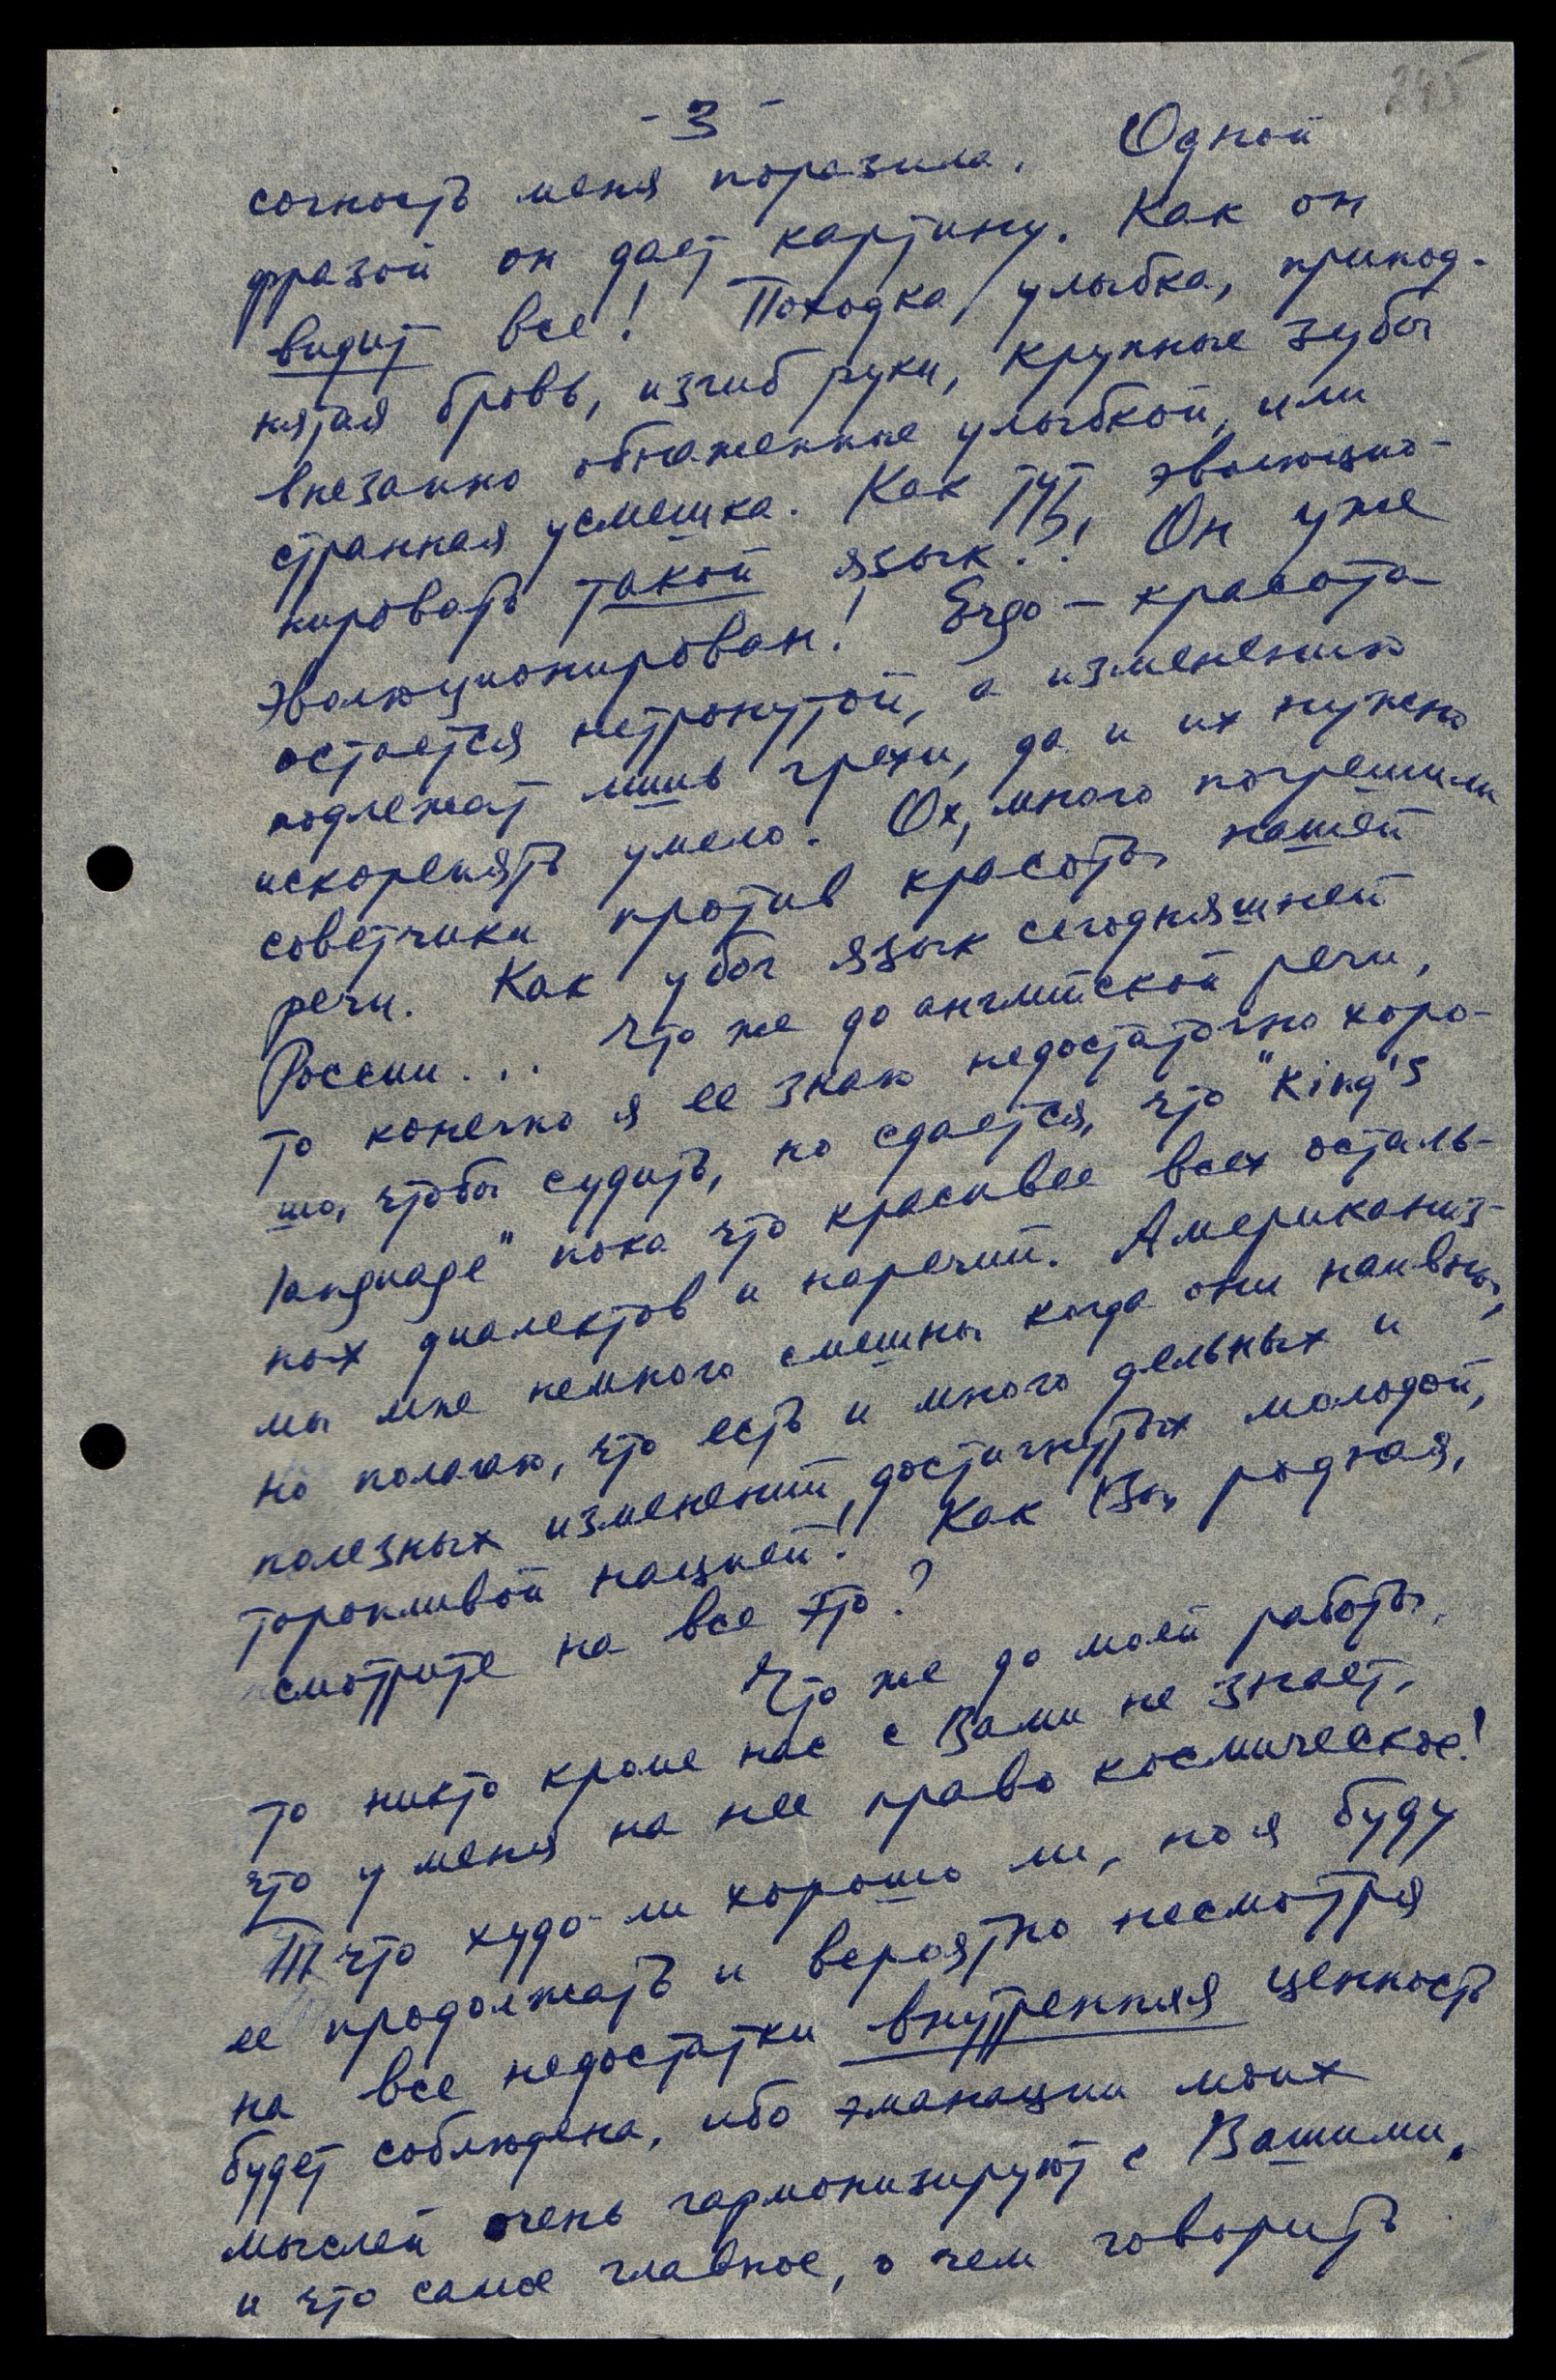 245
- 3 -
сочность меня поразила. Одной
фразой он дает картину. Как он
видит все! Походка, улыбка, припод-
нятая бровь, изгиб руки, крупные зубы
внезапно обнаженные улыбкой, или
странная усмешка. Как тут эволюцио-
нировать такой язык?! Он уже
эволюционирован! Ergo - красота
остается нетронутой, а изменению
подлежат лишь грехи, да и их нужно
искоренять умело. Ох, много погрешили
советчики против красоты нашей
речи. Как убог язык сегодняшней
России... Что же до английской речи,
то конечно я ее знаю недостаточно хоро-
шо, чтобы судить, но сдается, что "King's
language" пока что красивее всех осталь-
ных диалектов и наречий. Американиз-
мы мне немного смешны когда они наивны,
но полагаю, что есть и много дельных и
полезных изменений, достигнутых молодой,
торопливой нацией! Как Вы, родная,
смотрите на все это?
Что же до моей работы,
то никто кроме нас с Вами не знает,
что у меня на нее право космическое!
Так что худо-ли хорошо ли, но я буду
ее продолжать и вероятно несмотря
на все недостатки внутренняя ценность
будет соблюдена, ибо эманации моих
мыслей очень гармонизируют с Вашими,
и что самое главное, о чем говорить